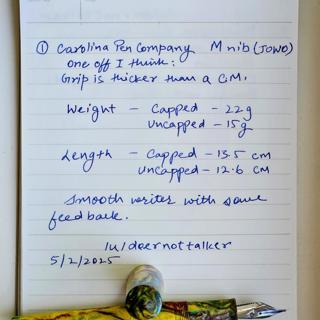 ① Carolina Pen Company M nib (JOWO)
One off I think:
Grip is thicker than a CM.
Weight - Capped - 22g
Uncapped - 15g
Length - Capped - 13.5 cm
Uncapped - 12.6 cm
Smooth writer with some
feedback.
/u/doernottalker
5/2/2025